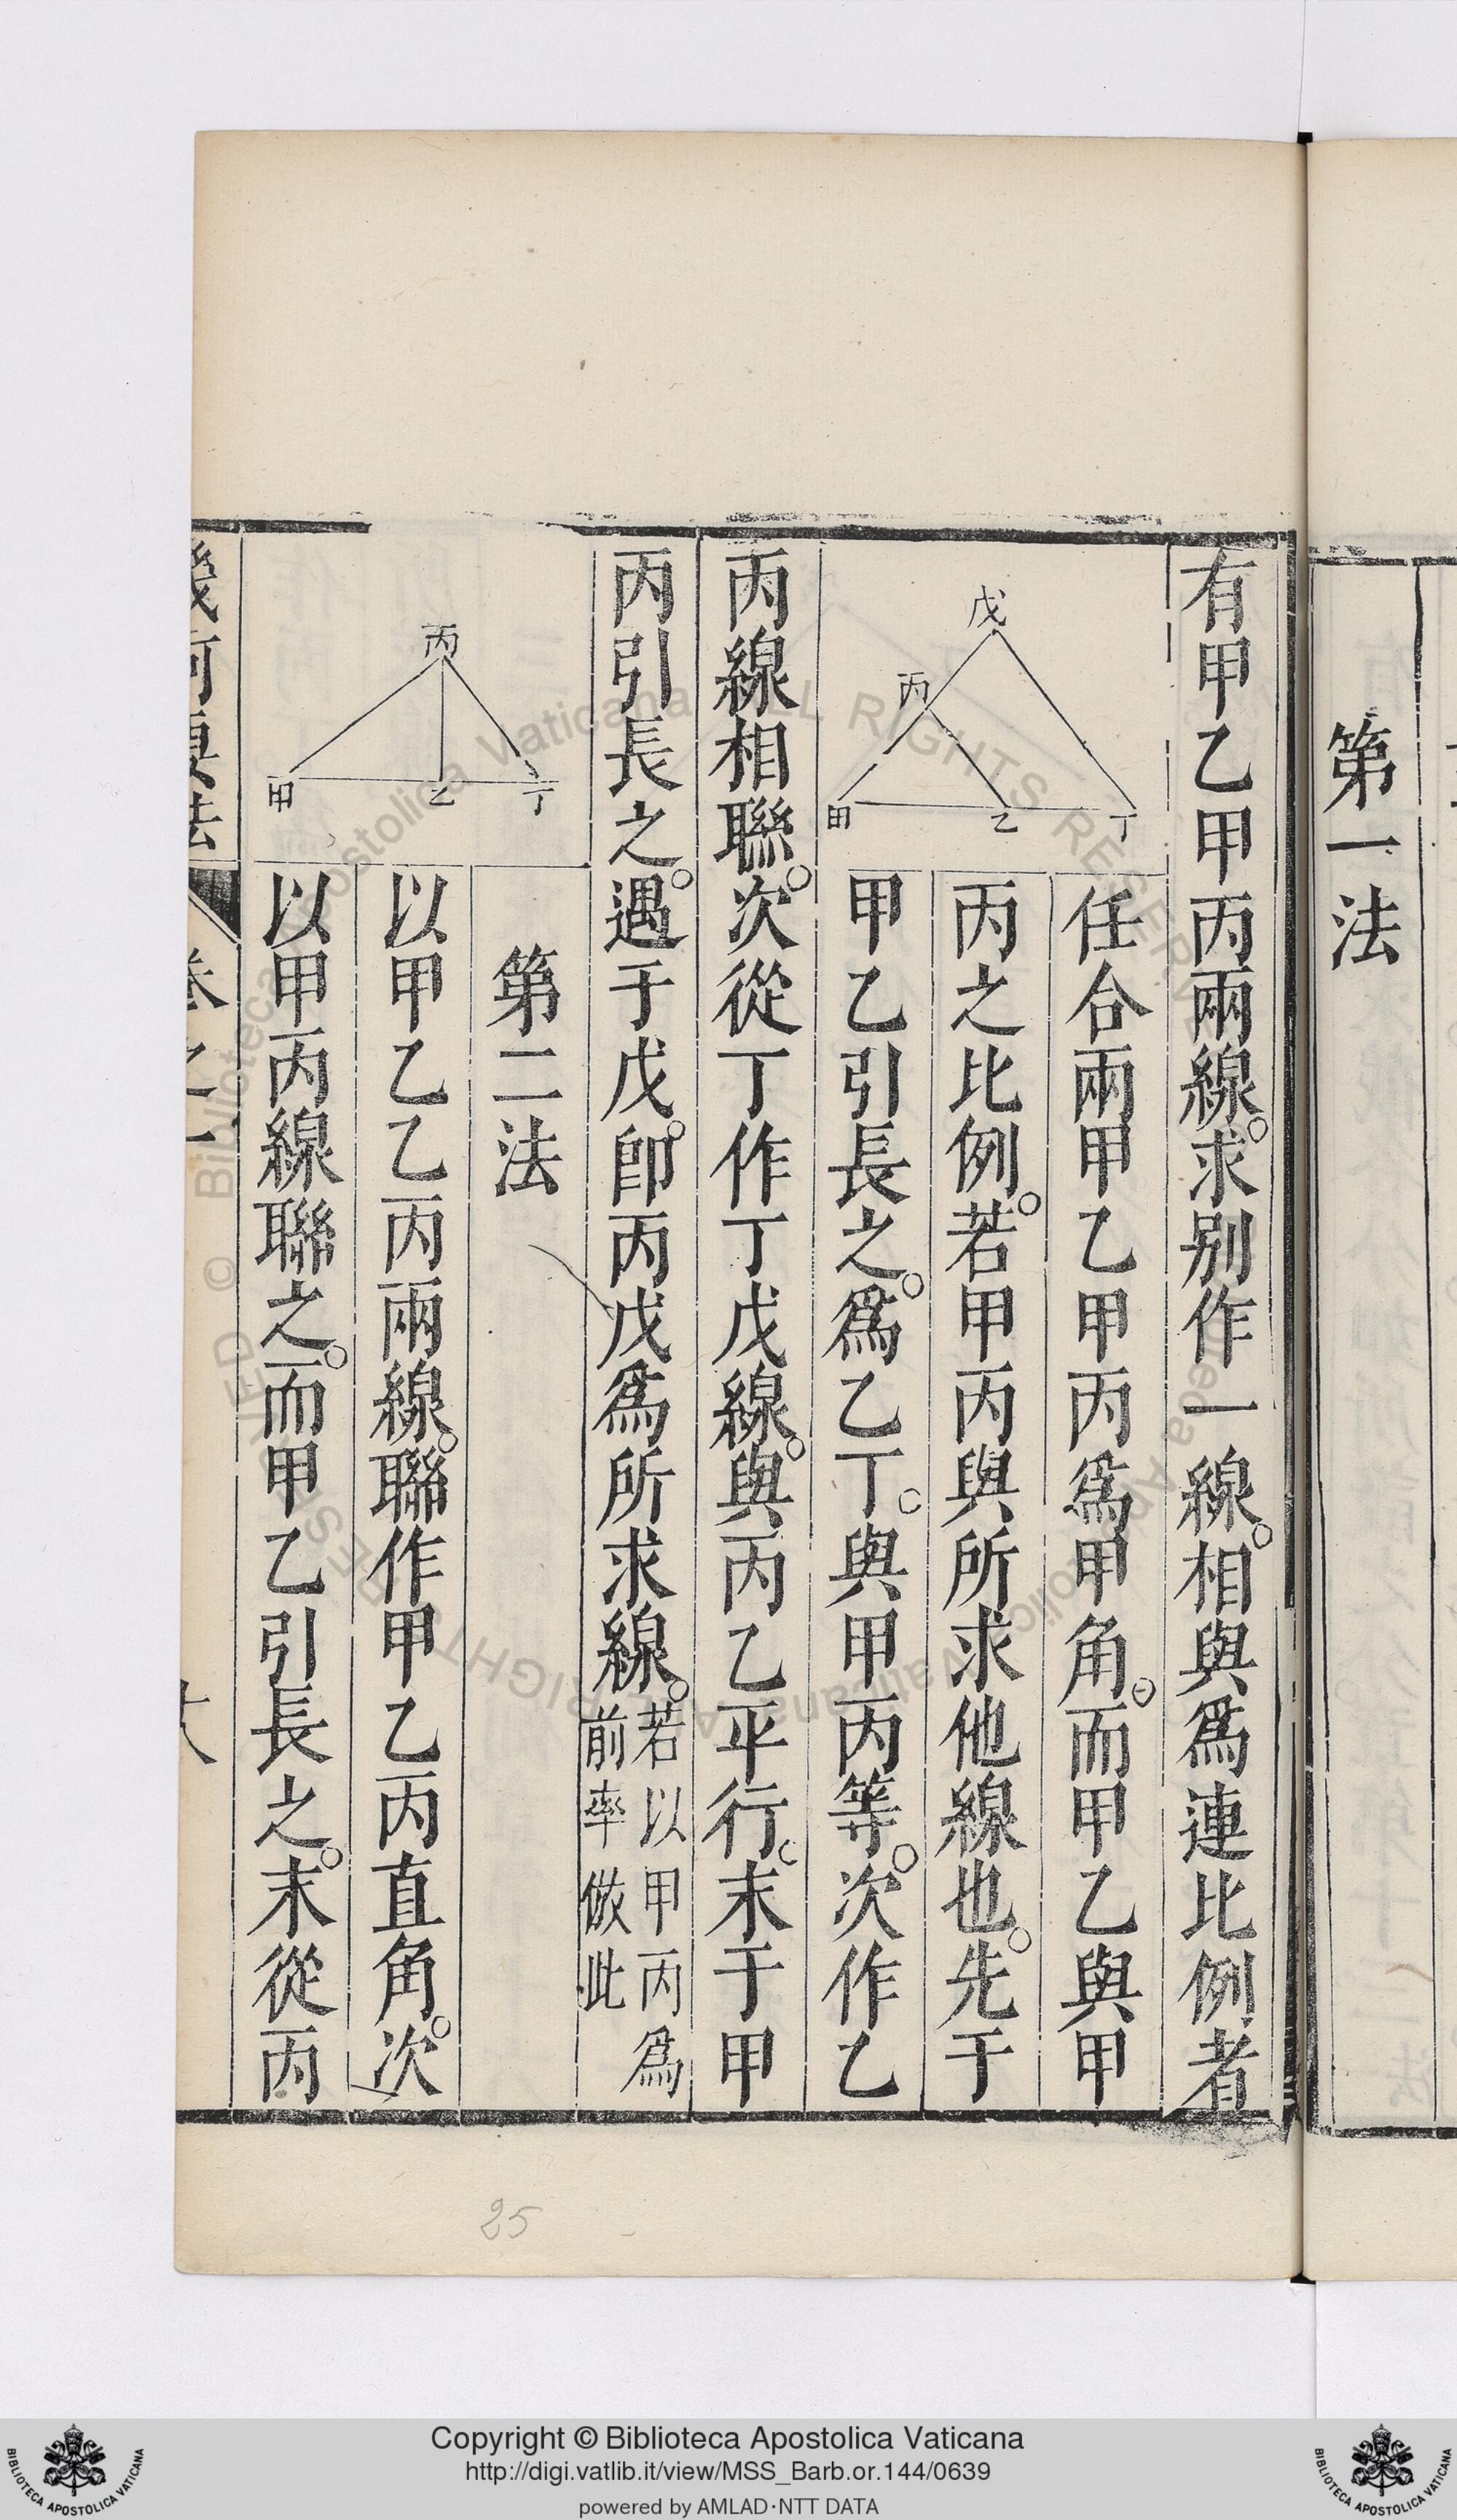 第一法
有甲乙甲丙兩線。求别作一線。相與爲連比例者
任合兩甲乙甲丙爲甲角。而甲乙與甲
丙之比例。若甲丙與所求他線也。先于
甲乙引長之。爲乙丁。與甲丙等。次作乙
丙線相聯。次從丁作丁戊線。與丙乙平行。末于甲
丙引長之。遇于戊。卽丙戊爲所求線。若以甲丙爲
前率倣此
戊
丙
甲
乙
丁
第二法
以甲乙乙丙兩線。聯作甲乙丙直角。次
以甲丙線聯之。而甲乙引長之。末從丙
丙
甲
乙
丁
幾何要法
卷之一
25
© Biblioteca Apostolica Vaticana ALL RIGHTS RESERVED
Copyright © Biblioteca Apostolica Vaticana
http://digi.vatlib.it/view/MSS_Barb.or.144/0639
powered by AMLAD·NTT DATA
BIBLIOTECA APOSTOLICA VATICANA
BIBLIOTECA APOSTOLICA VATICANA